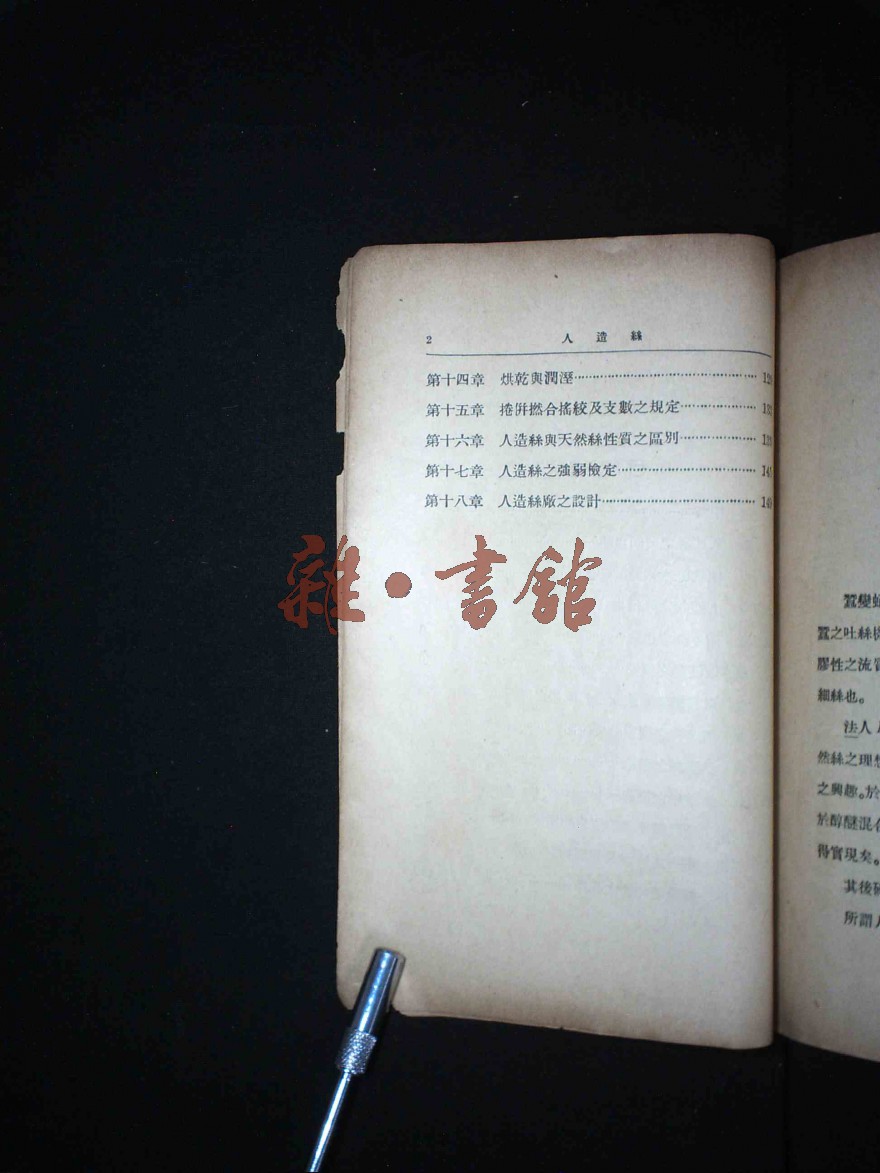 2 人造絲
第十四章 烘乾與潤溼
第十五章 捲倂撚合搖絞及支數之規定
第十六章 人造絲與天然絲性質之區別
第十七章 人造絲之強弱檢定
第十八章 人造絲廠之設計
雜·書館
蠶變
蠶之吐絲
膠性之流質
細絲也。
法人
然絲之理想
之興趣。於
於醇醚混合
得實現矣。
其後
所謂